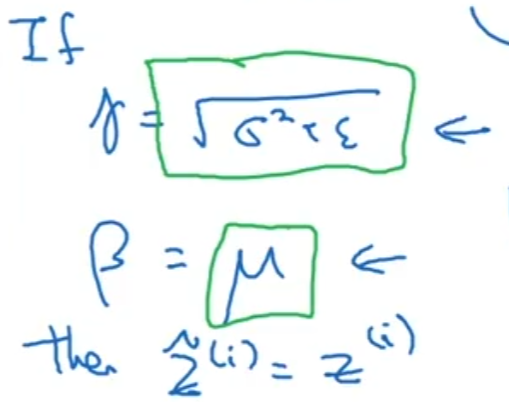 If
γ = √(σ² + ε) ←
β = μ ←
then z̃⁽ⁱ⁾ = z⁽ⁱ⁾